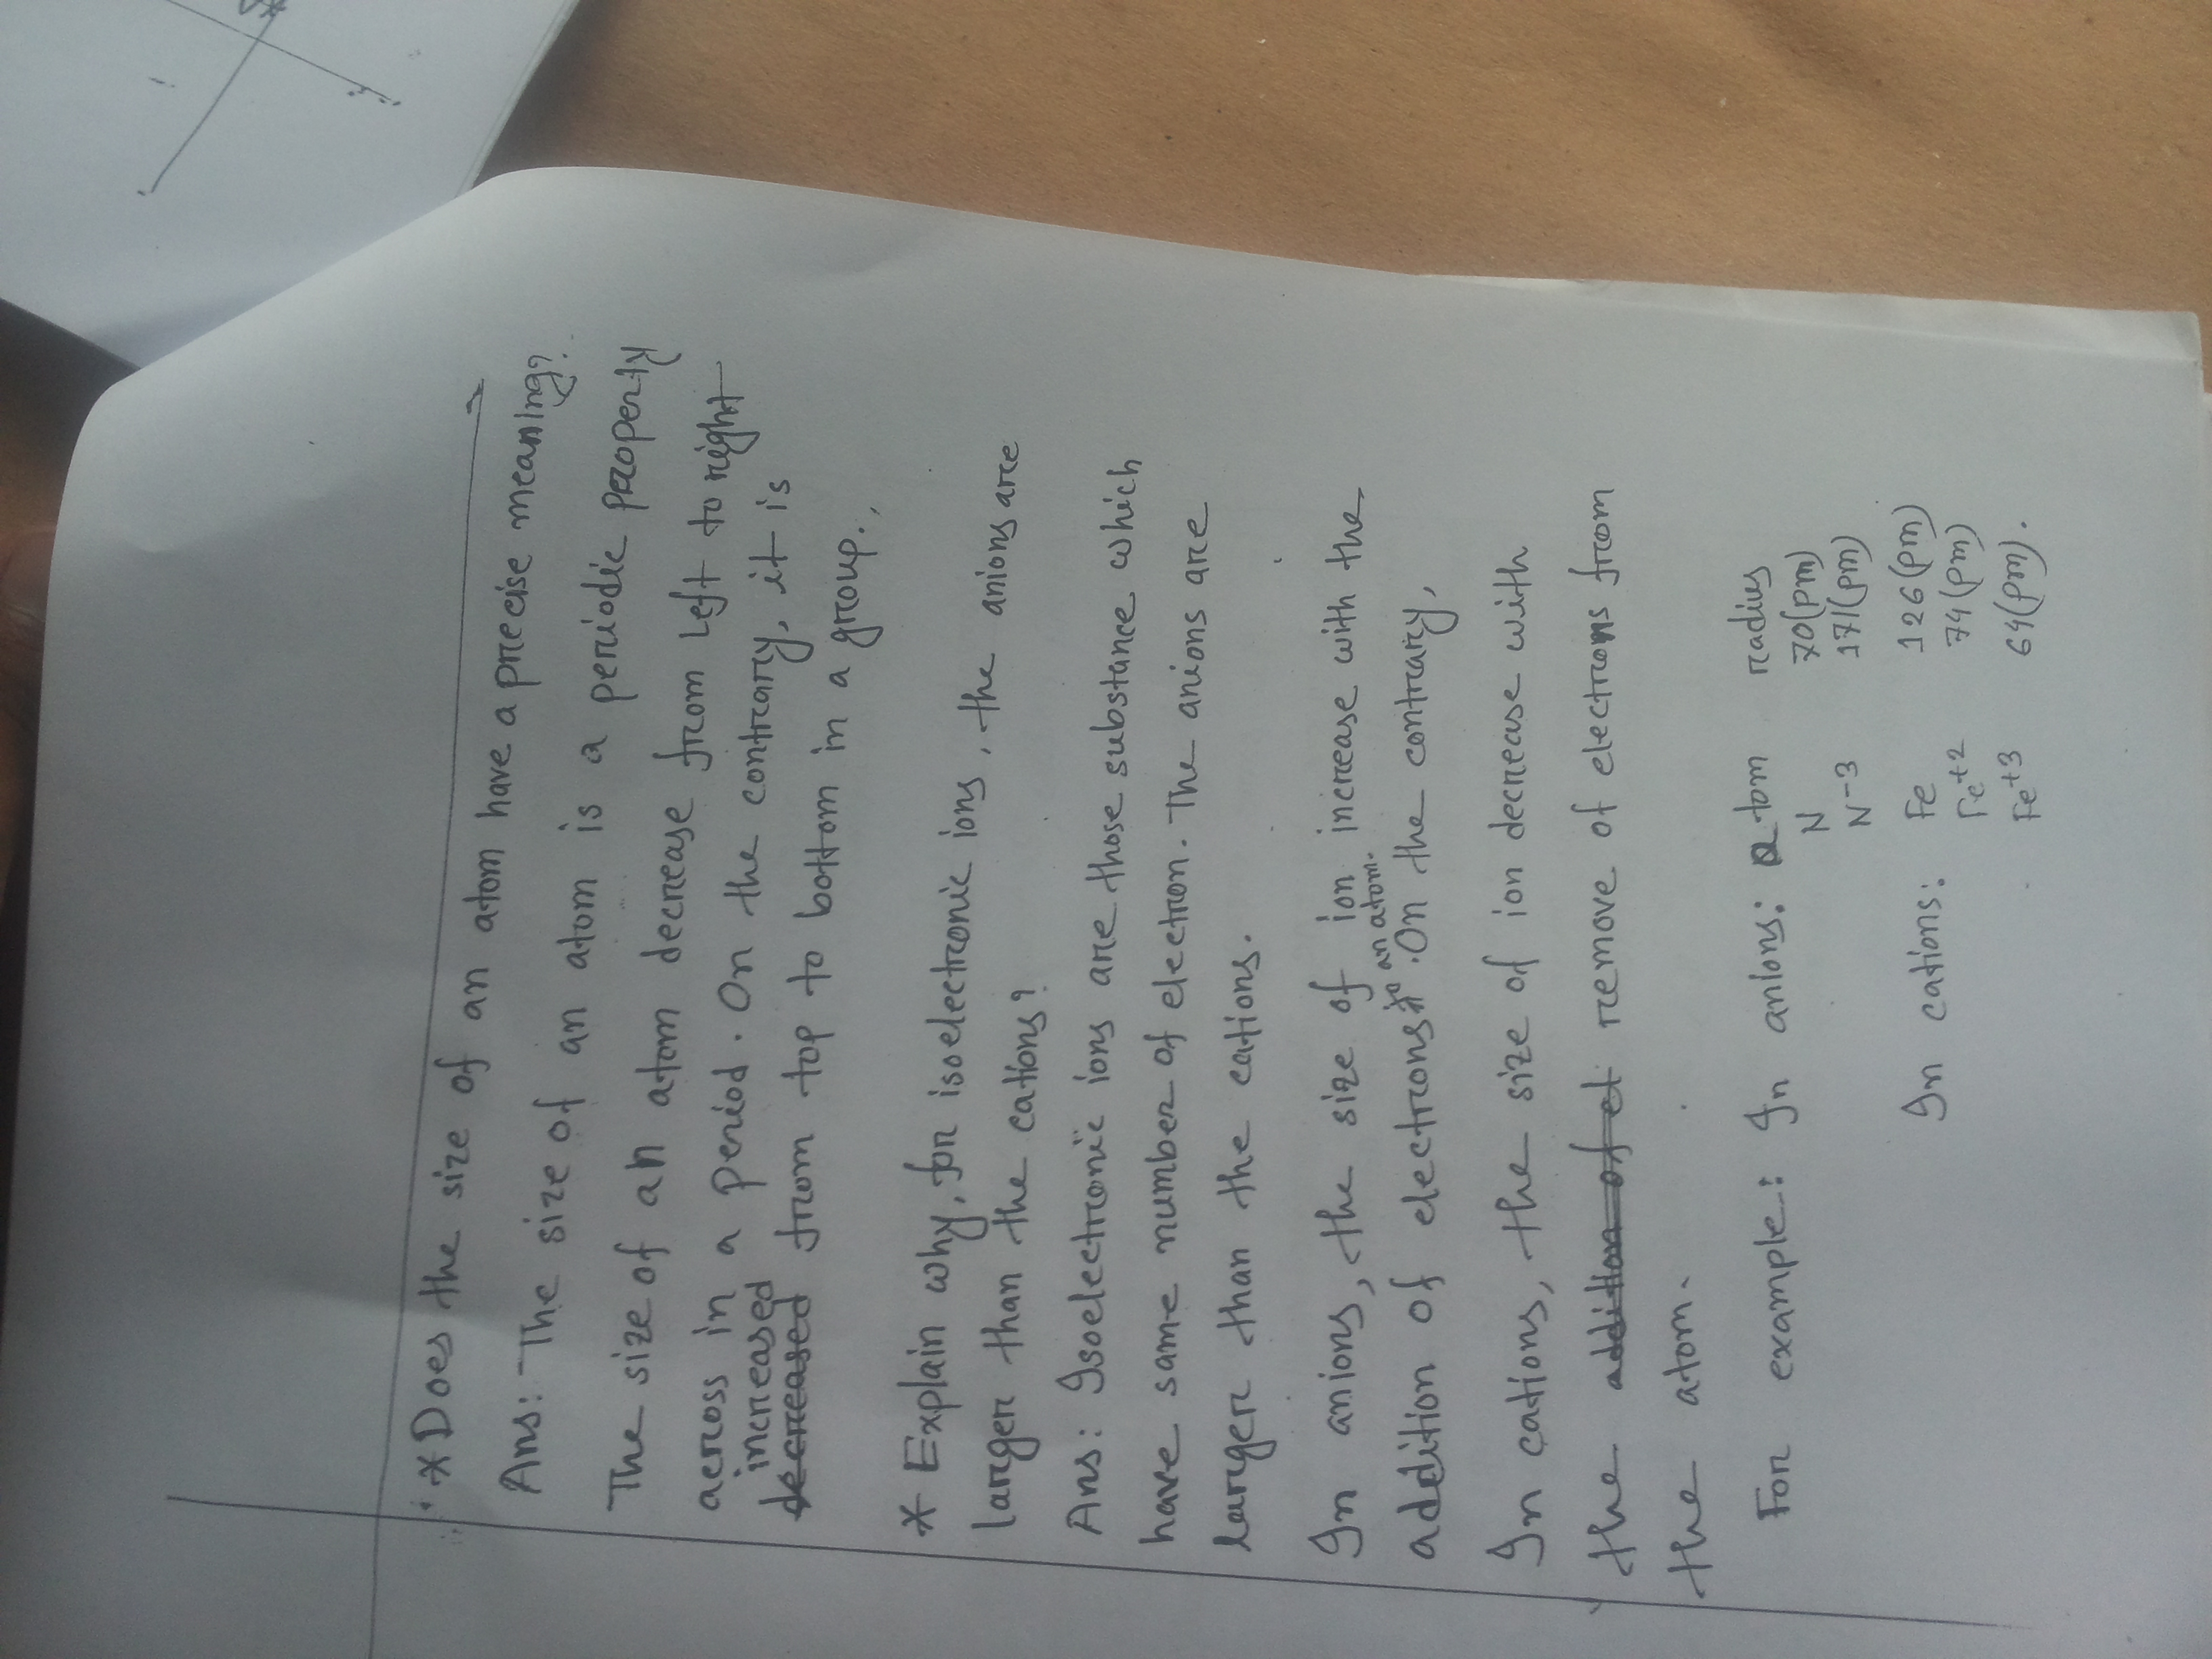 * Does the size of an atom have a precise meaning?
Ans: The size of an atom is a periodic property
The size of an atom decrease from left to right
across in a period. On the contrary, it is
increased
decreased from top to bottom in a group.
* Explain why, for isoelectronic ions, the anions are
larger than the cations?
Ans: Isoelectronic ions are those substance which
have same number of electron. The anions are
larger than the cations.
In anions, the size of ion increase with the
to an atom.
addition of electrons. On the contrary,
In cations, the size of ion decrease with
the addition of el remove of electrons from
the atom.
For example: In anions: atom radius
N 70(pm)
N-3 171(pm)
In cations: Fe 126(pm)
Fe+2 74(pm)
Fe+3 64(pm).